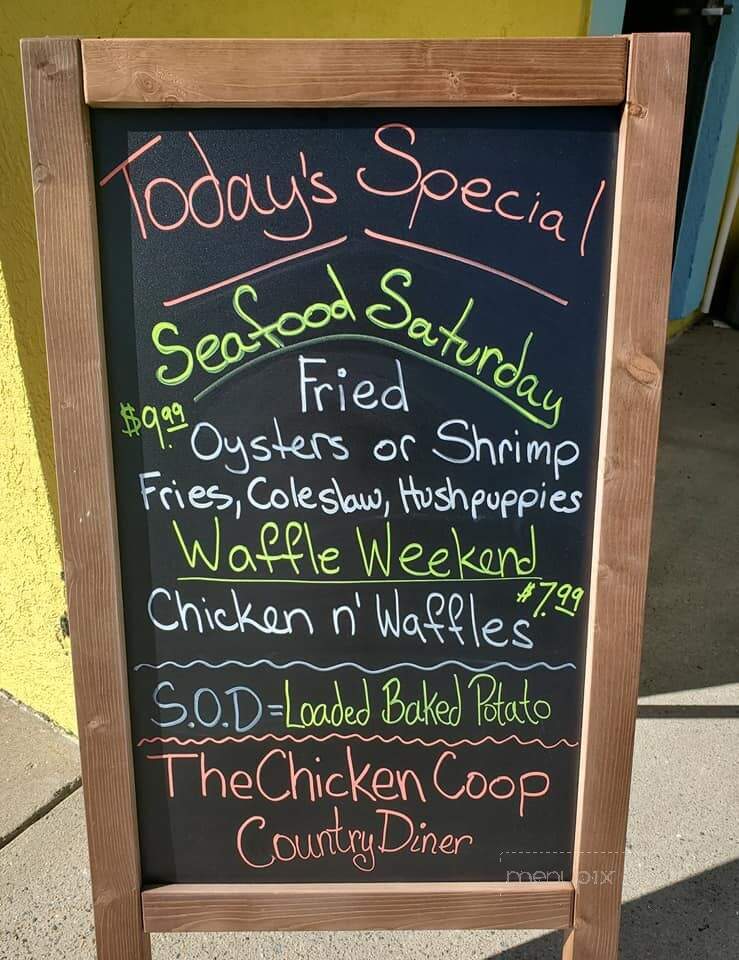 Today's Special
Seafood Saturday
Fried
$9.99
Oysters or Shrimp
Fries, Coleslaw, Hushpuppies
Waffle Weekend
$7.99
Chicken n' Waffles
S.O.D=Loaded Baked Potato
The Chicken Coop
Country Diner
menupix